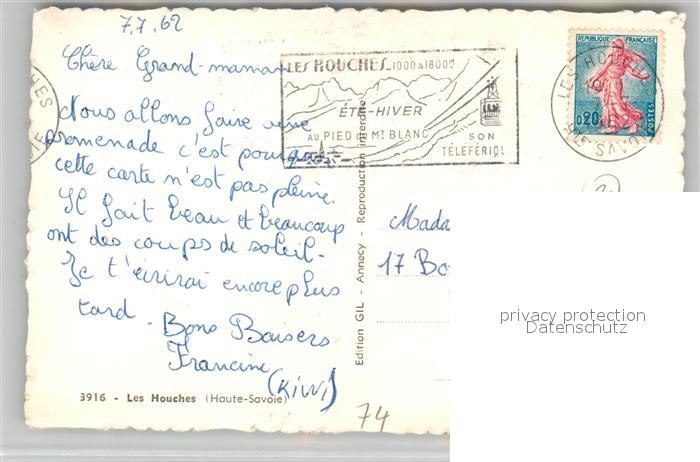 7.7.62
Chère Grand-maman
Nous allons faire une
promenade c'est pourquoi
cette carte n'est pas pleine.
Il fait beau et beaucoup
ont des coups de soleil.
Je t'écrirai encore plus
tard.
Bons Baisers
Francine
(Kiwi)
3916 - Les Houches (Haute-Savoie)
74
Edition GIL - Annecy - Reproduction interdite
LES HOUCHES 1000 A 1800m
ÉTÉ-HIVER
AU PIED DU MT BLANC
SON
TÉLÉFÉRIQUE
REPUBLIQUE FRANÇAISE
0,20
POSTES
LES HOUCHES
Mada
17 Bo
privacy protection
Datenschutz